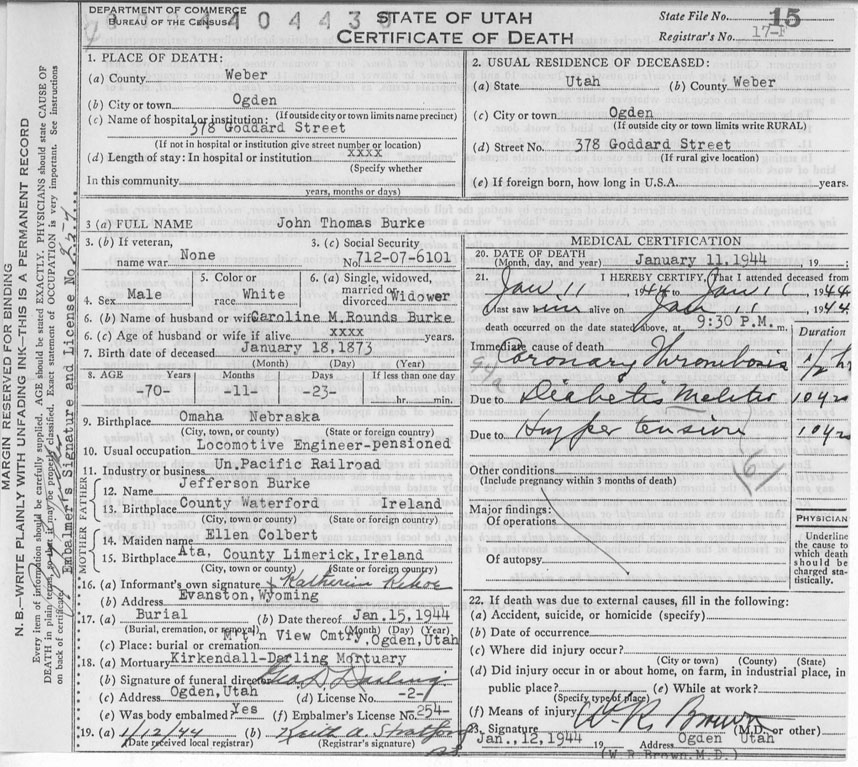 DEPARTMENT OF COMMERCE
BUREAU OF THE CENSUS
440443
STATE OF UTAH
CERTIFICATE OF DEATH
State File No. 15
Registrar's No. 17-F
MARGIN RESERVED FOR BINDING
N. B.—WRITE PLAINLY WITH UNFADING INK—THIS IS A PERMANENT RECORD
Every item of information should be carefully supplied. AGE should be stated EXACTLY. PHYSICIANS should state CAUSE OF
DEATH in plain terms, so that it may be properly classified. Exact statement of OCCUPATION is very important. See instructions
on back of certificate.
Embalmer's Signature and License No.
1. PLACE OF DEATH:
(a) County Weber
(b) City or town Ogden
(If outside city or town limits name precinct)
(c) Name of hospital or institution:
378 Goddard Street
(If not in hospital or institution give street number or location)
(d) Length of stay: In hospital or institution xxxx
(Specify whether
In this community
years, months or days)
2. USUAL RESIDENCE OF DECEASED:
(a) State Utah (b) County Weber
(c) City or town Ogden
(If outside city or town limits write RURAL)
(d) Street No. 378 Goddard Street
(If rural give location)
(e) If foreign born, how long in U.S.A. years.
3 (a) FULL NAME John Thomas Burke
3. (b) If veteran,
name war None
3. (c) Social Security
No. 712-07-6101
4. Sex Male
5. Color or
race White
6. (a) Single, widowed,
married or
divorced Widower
6. (b) Name of husband or wife Caroline M.Rounds Burke
6. (c) Age of husband or wife if alive xxxx years.
7. Birth date of deceased January 18,1873
(Month) (Day) (Year)
8. AGE Years Months Days If less than one day
-70- -11- -23- hr. min.
9. Birthplace Omaha Nebraska
(City, town, or county) (State or foreign country)
10. Usual occupation Locomotive Engineer-pensioned
11. Industry or business Un.Pacific Railroad
FATHER
12. Name Jefferson Burke
13. Birthplace County Waterford Ireland
(City, town or county) (State or foreign country)
MOTHER
14. Maiden name Ellen Colbert
15. Birthplace Ata, County Limerick,Ireland
(City, town or county) (State or foreign country)
16. (a) Informant's own signature Katherin Kehoe
(b) Address Evanston, Wyoming
17. (a) Burial (b) Date thereof Jan.15,1944
(Burial, cremation, or removal) (Month) (Day) (Year)
(c) Place: burial or cremation Mt'n View Cmtry,Ogden,Utah
18. (a) Mortuary Kirkendall-Darling Mortuary
(b) Signature of funeral director Geo. D. Darling
(c) Address Ogden,Utah (d) License No. -2-
(e) Was body embalmed? Yes (f) Embalmer's License No. -254-
19. (a) 1/12/44 (b) Keith A. Stratford
(Date received local registrar) (Registrar's signature)
MEDICAL CERTIFICATION
20. DATE OF DEATH
(Month, day, and year) January 11.1944 , 19 ;
21. I HEREBY CERTIFY, That I attended deceased from
Jan 11 , 1944 to Jan 11 , 1944
I last saw him alive on Jan 11 , 1944
death occurred on the date stated above, at 9:30 P.M. m.
Duration
Immediate cause of death
94a
Coronary Thrombosis 1/2 hr
Due to Diabetis Melitis 10 yrs
Due to Hyper tension 10 yrs
(61)
Other conditions
(Include pregnancy within 3 months of death)
Major findings:
Of operations
Of autopsy
PHYSICIAN
Underline
the cause to
which death
should be
charged sta-
tistically.
22. If death was due to external causes, fill in the following:
(a) Accident, suicide, or homicide (specify)
(b) Date of occurrence
(c) Where did injury occur?
(City or town) (County) (State)
(d) Did injury occur in or about home, on farm, in industrial place, in
public place? (e) While at work?
(Specify type of place)
(f) Means of injury
23. Signature W R Brown
(M.D. or other)
Jan., 12,1944 19 Address Ogden Utah
(W.R.Brown,M.D.)